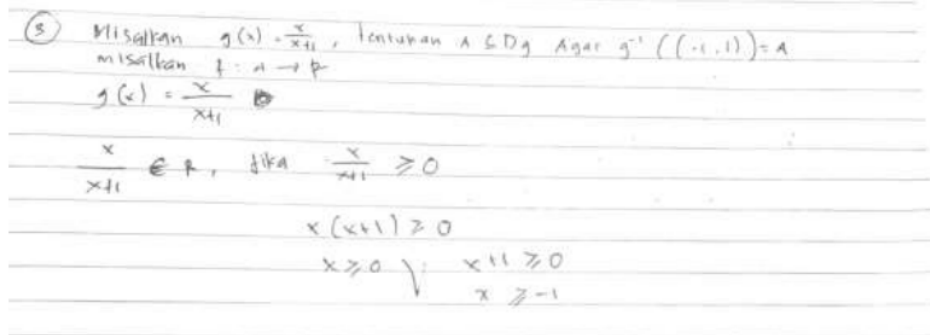 ③ Misalkan g(x) = x/(x+1), Tentukan A ⊆ Dg Agar g⁻¹((-1,1)) = A
misalkan f : A → R
g(x) = x/(x+1)
x/(x+1) ∈ R, jika x/(x+1) ≥ 0
x(x+1) ≥ 0
x ≥ 0 V x+1 ≥ 0
x ≥ -1